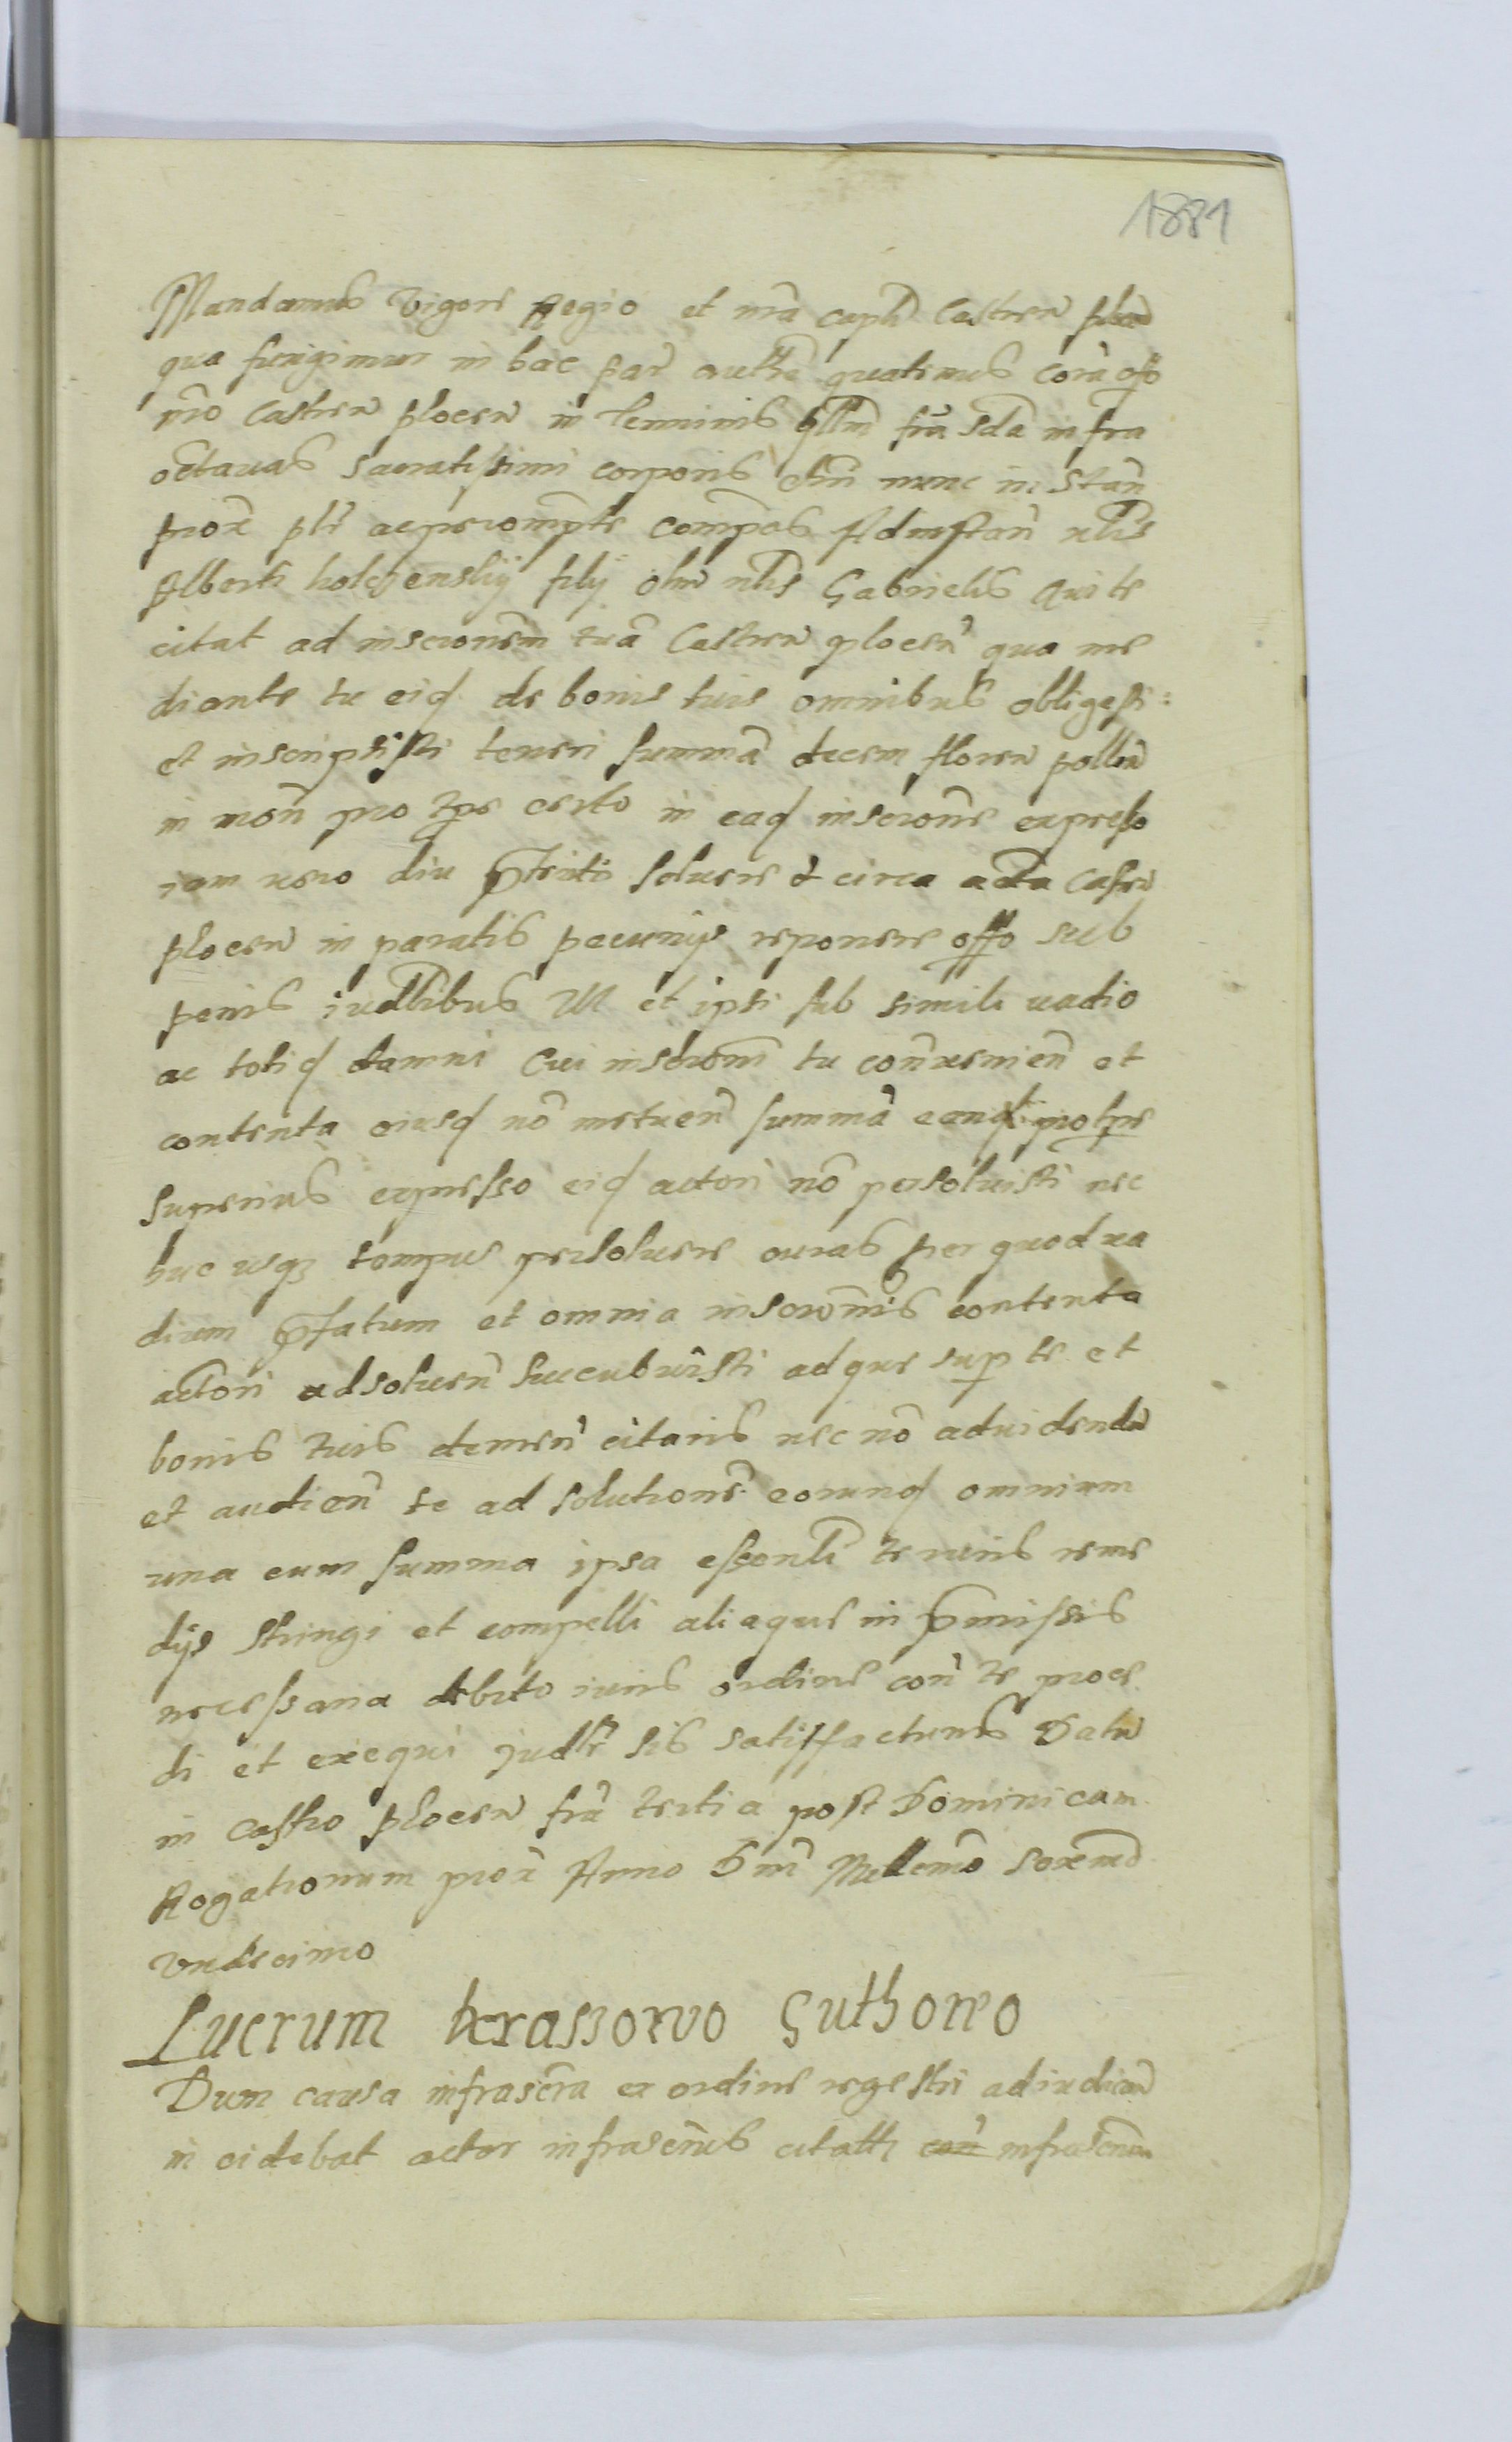 1881
Mandamus vigore Regio et nra capli Castren plocen
qua fungimur in hac par authe quatenus cora offo
nro Castren plocen in Terminis qllm fria sda infra
octauas sacratissimi corporis chri nunc instan
prox plr ac peremptr compas Ad instan nlis
Alberti filij olim nlis Gabrielis Qui te
citat ad inscronem tua Castren plocen qua me
diante tu eid de bonis tuis omnibus obligasti
et inscripsisti teneri summa decem floren pollin
in mon pro tpe certo in ead inscrone expresso
iam vero diu pterito soluere & circa acta Castren
plocen in paratis pecunijs reponere offo sub
penis iudlibus et ipsi sub simili vadio
ac totid damni Cui inscroni tu conuenien et
contenta eiusd no metuen summa eand pro tpe
superius expresso eid actori no persoluisti nec
huc usq tempus persoluere curas per quod va
dium pfatum et omnia inscronis contenta
actori ad soluen succubuisti ad que sup te et
bonis tuis demen citaris nec no ad videndu
et audien te ad solutione eorund omnium
una cum summa ipsa essenli te iuris reme
dijs stringi et compelli aliaque in pmissis
necessaria debito iuris ordine con te proce
di et exequi judlr sis satisfacturus Datu
in castro plocen fria tertia post Dominicam
Rogationum prox Anno Dni Millemo sexcmo
vndecimo
Lucrum krassowo Guthowo
Dum causa infrascra ex ordine regestri ad iudican
incidebat actor infrascrius citatu infrascrium